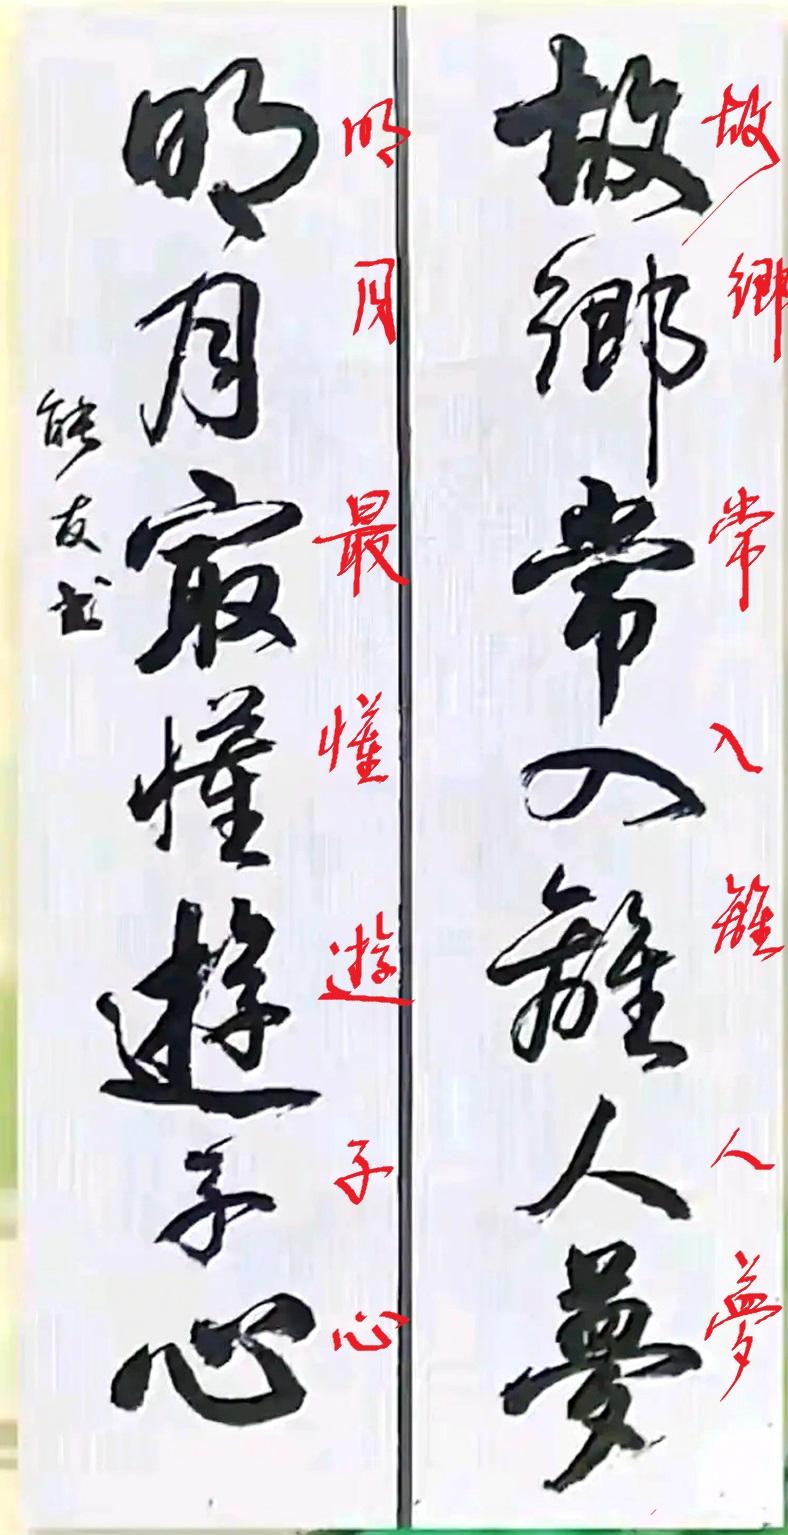 故鄉常入離人夢
故鄉常入離人夢
明月最懂遊子心
明月㝡懂遊子心
能友书